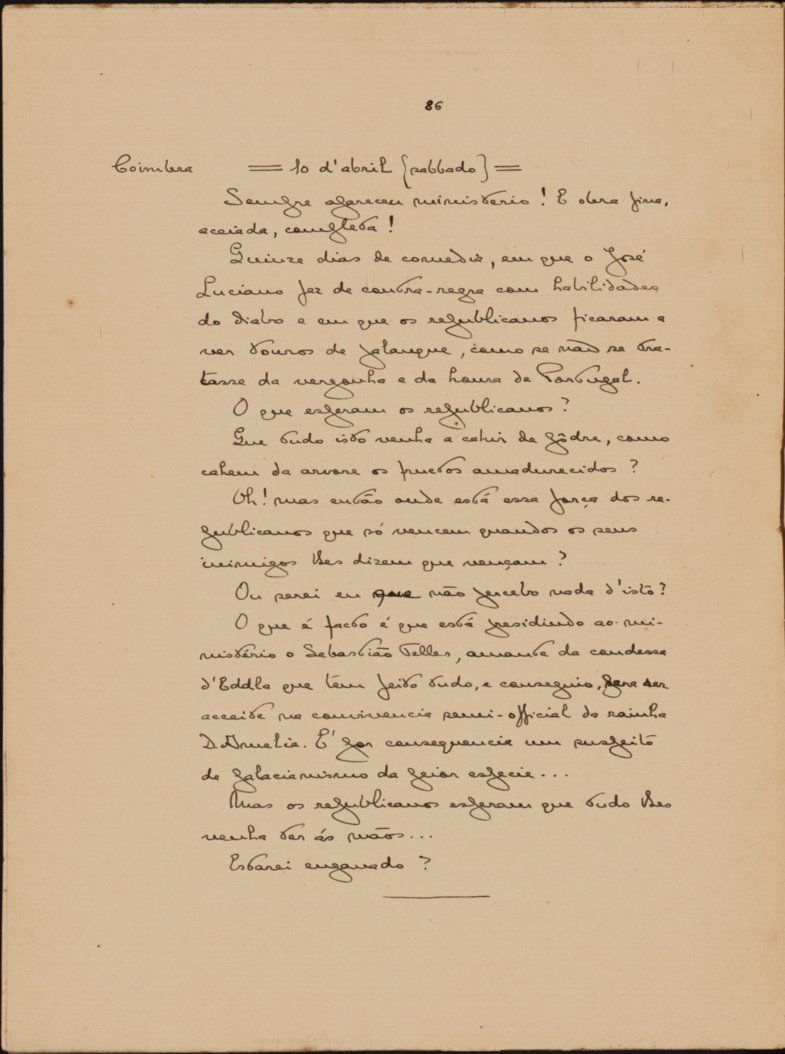 86
Coimbra == 10 d'abril [sabbado] ==
Sempre appareceu ministerio! E obra fina,
aceiada, completa!
Quinze dias de comedia, em que o José
Luciano fez de contra-regra com habilidades
do diabo e em que os republicanos ficaram a
ver touros de palanque, como se não se tra-
tasse da vergonha e da honra de Portugal.
O que esperam os republicanos?
Que tudo isto venha a cahir de pôdre, como
cahem da arvore os fructos amadurecidos?
Oh! mas então onde está essa força dos re-
publicanos que só vencem quandos os seus
inimigos lhes dizem que vençam?
Ou serei eu que não percebo nada d'isto?
O que é facto é que está presidindo ao mi-
nistério o Sebastião Telles, amante da condessa
d'Eddla que têm feito tudo, e conseguio, para ser
acceite na convivencia semi-official da rainha
D. Amelia. É por consequencia um suspeito
de palacianismo da peior especie...
Mas os republicanos esperam que tudo lhes
venha ter ás mãos...
Estarei enganado?